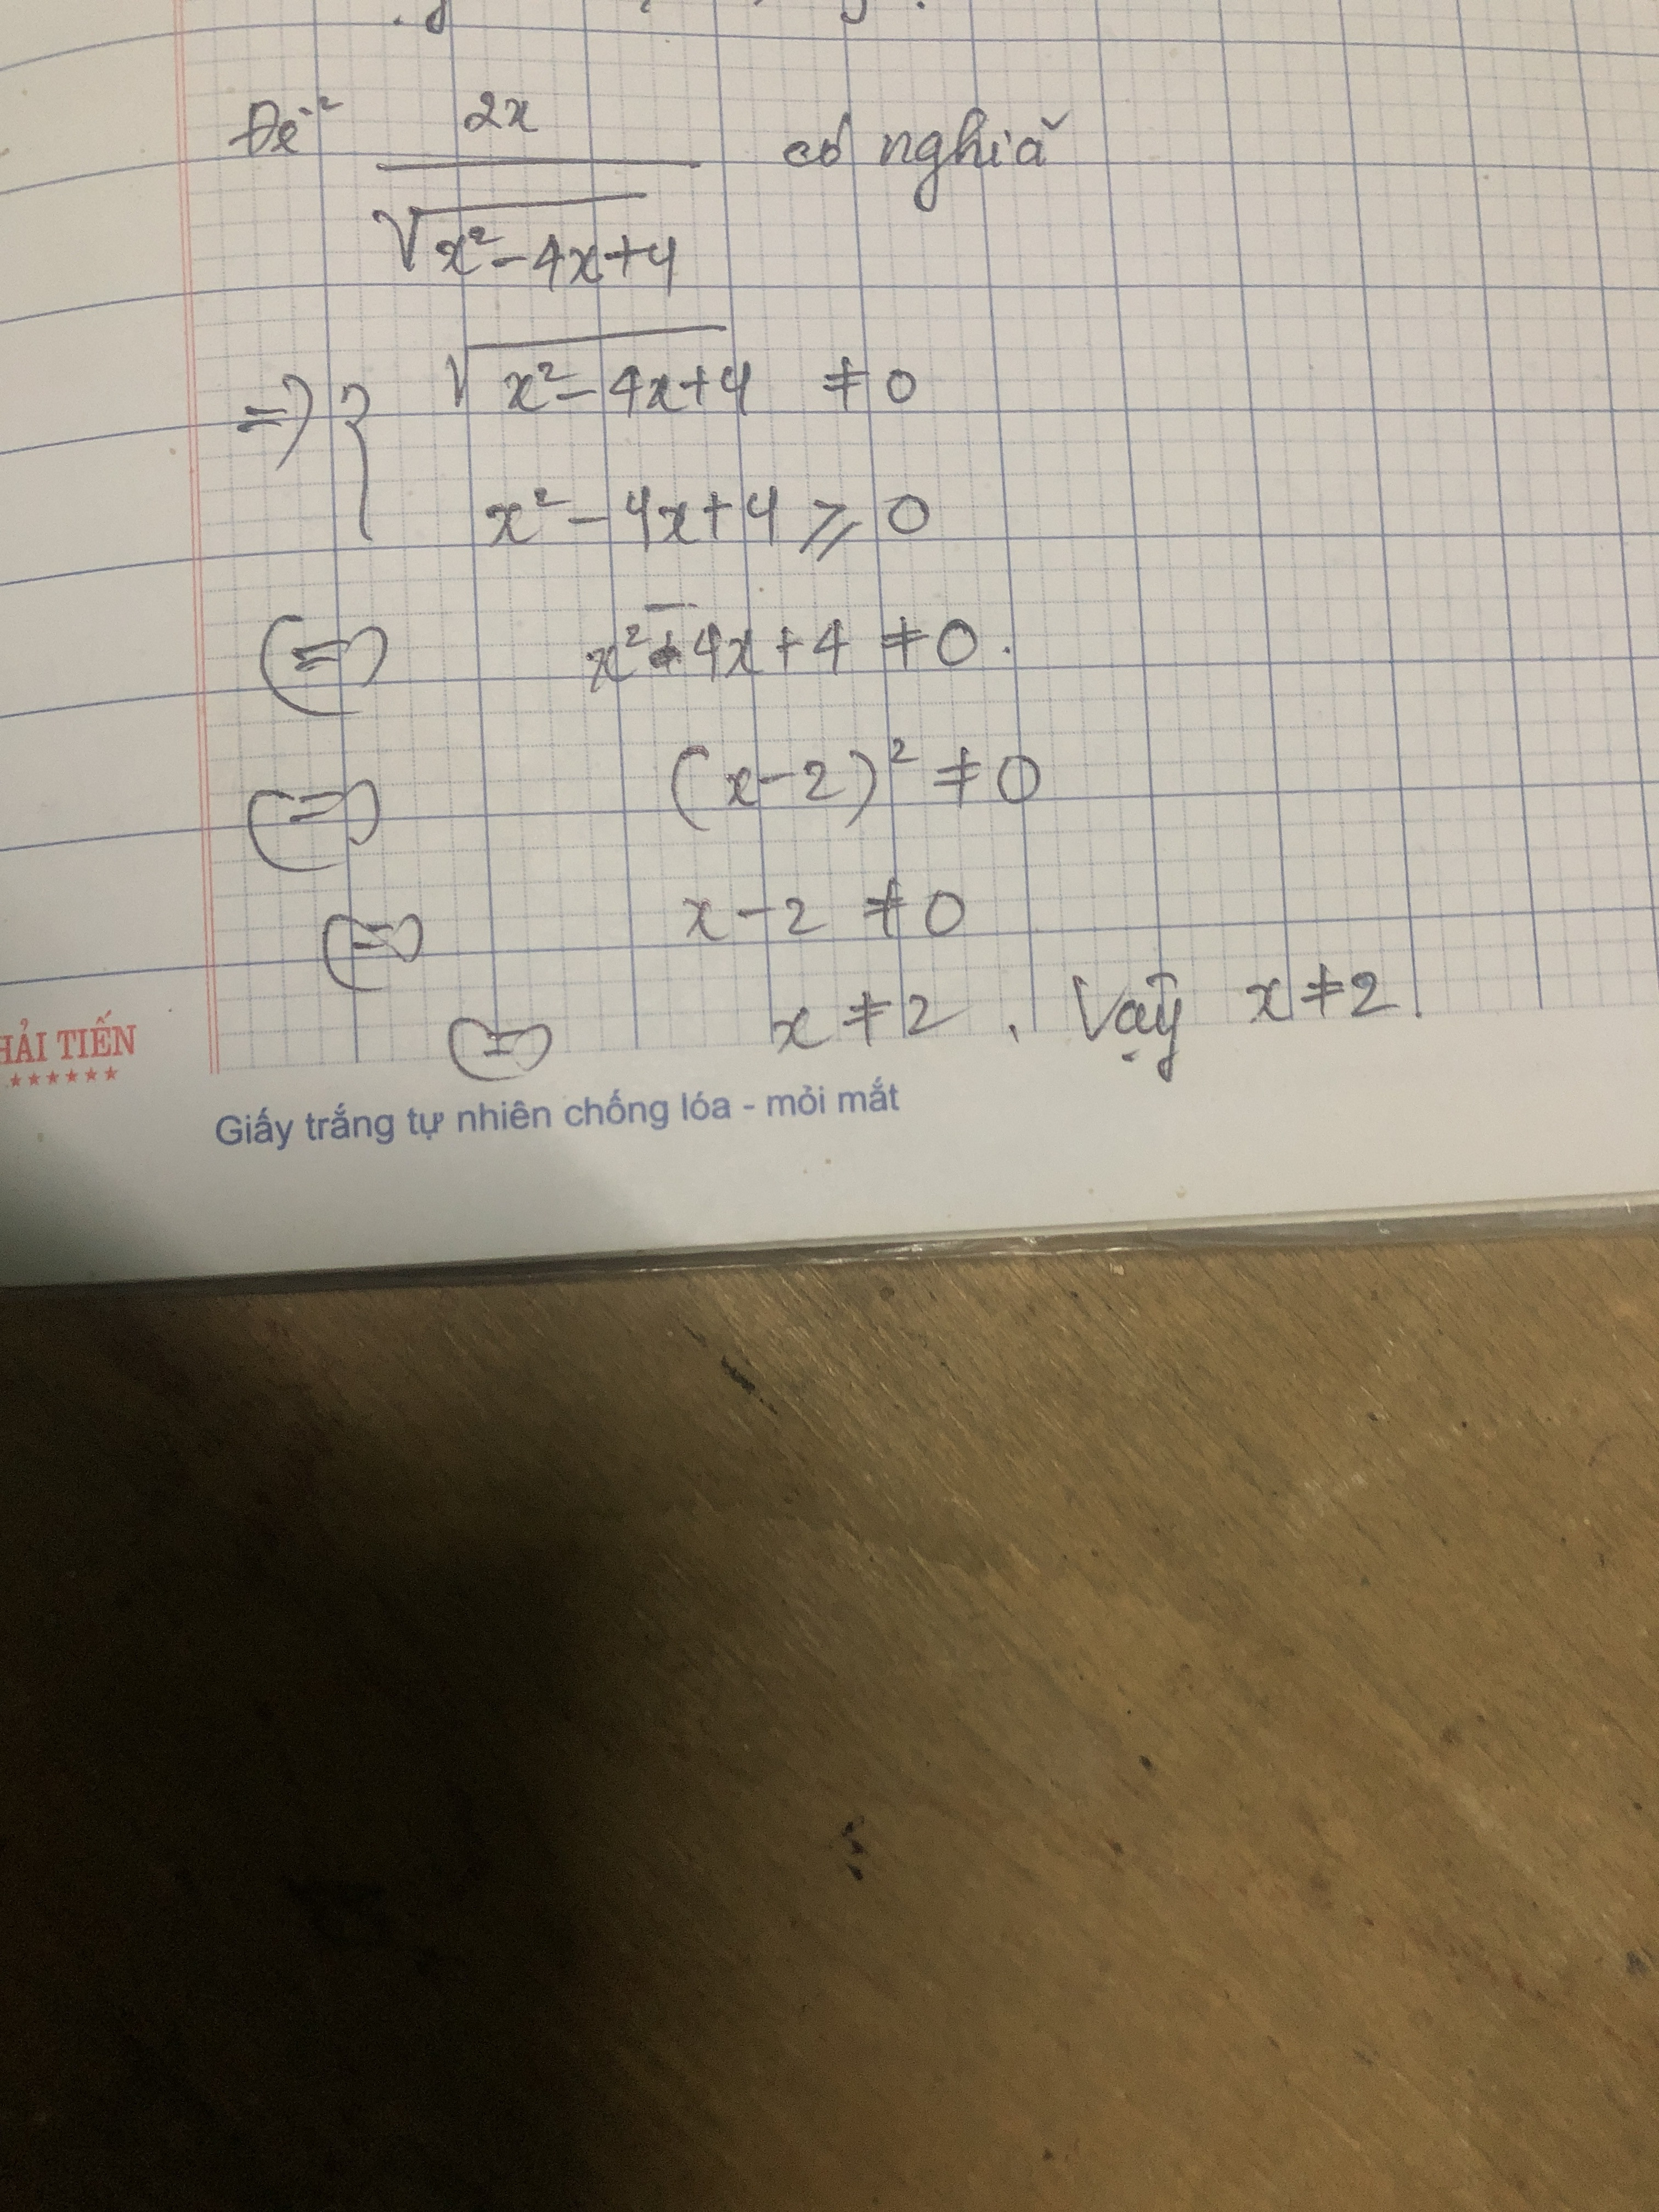 Để 2x / √x² - 4x + 4 có nghĩa
=> { √x² - 4x + 4 ≠ 0
x² - 4x + 4 ⩾ 0
<=> x² - 4x + 4 ≠ 0.
<=> (x - 2)² ≠ 0
<=> x - 2 ≠ 0
<=> x ≠ 2. Vậy x ≠ 2.
HẢI TIẾN
★★★★★★
Giấy trắng tự nhiên chống lóa - mỏi mắt